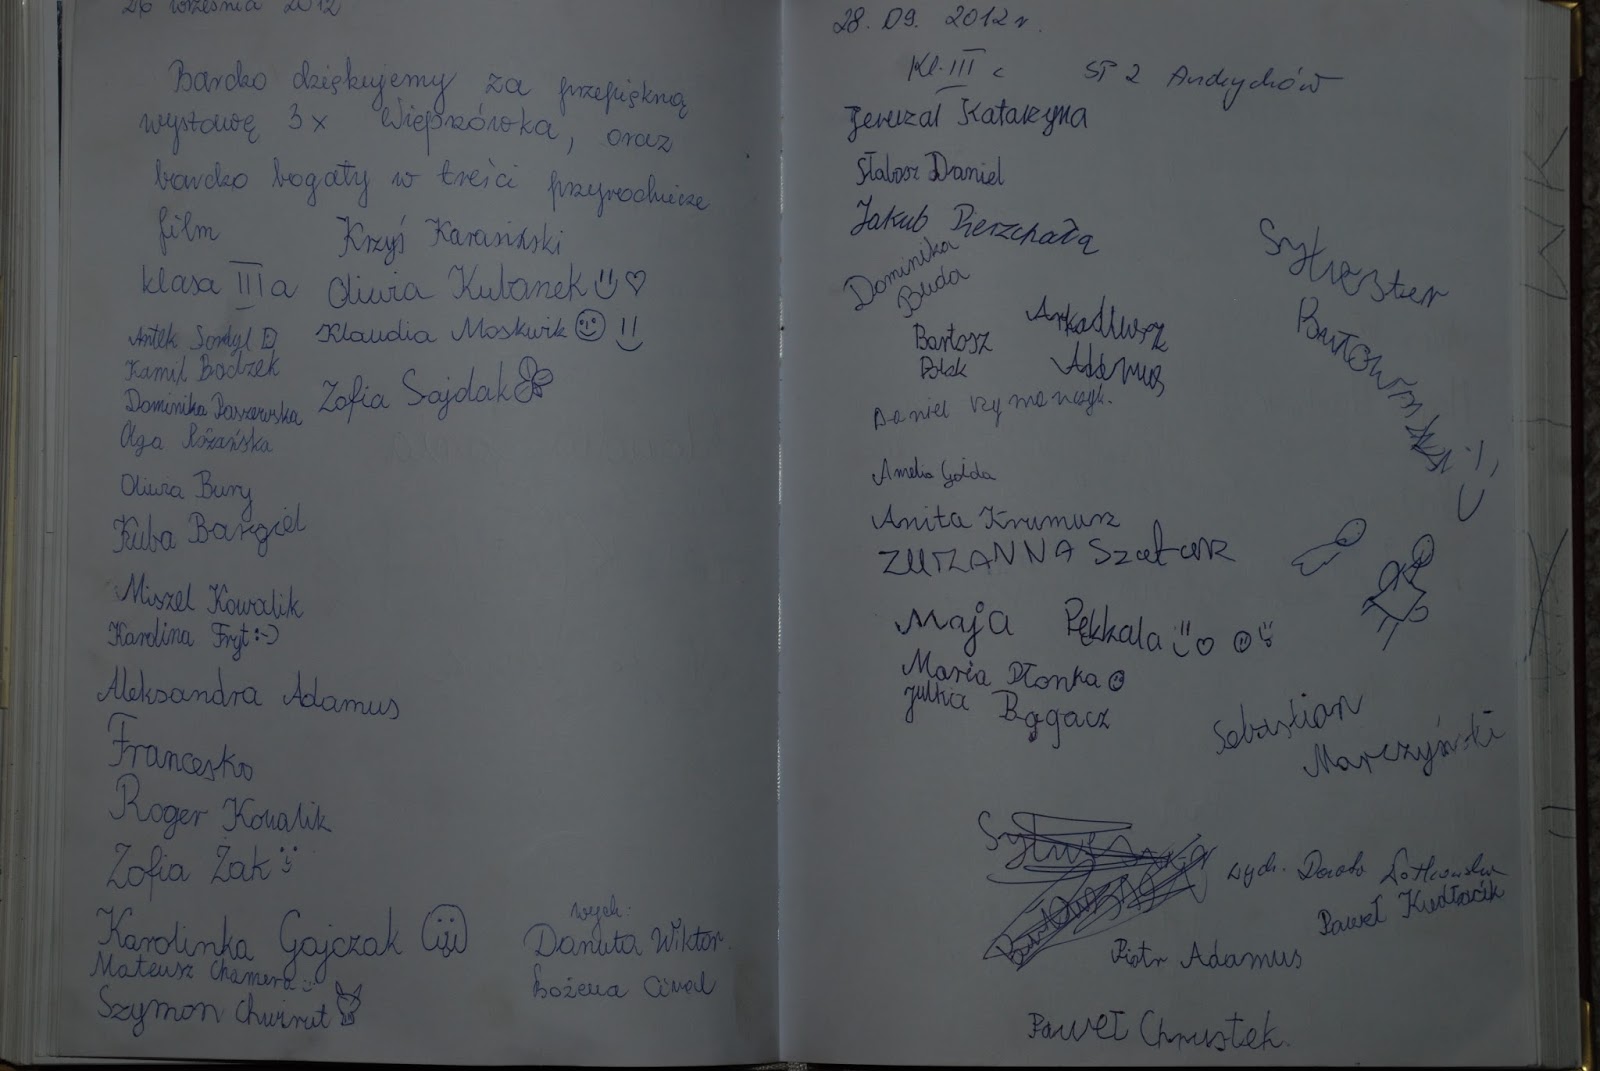 26 września 2012
Bardzo dziękujemy za przepiękną
wystawę 3x Wieprzówka, oraz
bardzo bogaty w treści przyrodnicze
film
Krzyś Karasiński
klasa III a
Oliwia Kubanek
Klaudia Moskwik
Antek
Kamil Badzek
Zofia Sajdak
Dominika
Olga Różańska
Oliwia Bury
Kuba Bargiel
Miszel Kowalik
Karolina Fryt :-)
Aleksandra Adamus
Francesko
Roger Kowalik
Zofia Żak
Karolinka Gajczak
Mateusz Chamera
Szymon Chwirut
wych:
Danuta Wiktor
Bożena
28. 09. 2012 r.
Kl. III c SP 2 Andrychów
Jeruzal Katarzyna
Słabosz Daniel
Jakub Pierzchała
Dominika
Buda
Bartosz
Arkadiusz
Adamus
Daniel
Amelia Gołda
Anita Krumusz
ZUZANNA
Maja Pękkala
Maria Płonka
Julka Bogacz
Sylwester
Sebastian
Marczyński
wych. Dorota
Paweł
Piotr Adamus
Paweł Chrustek.